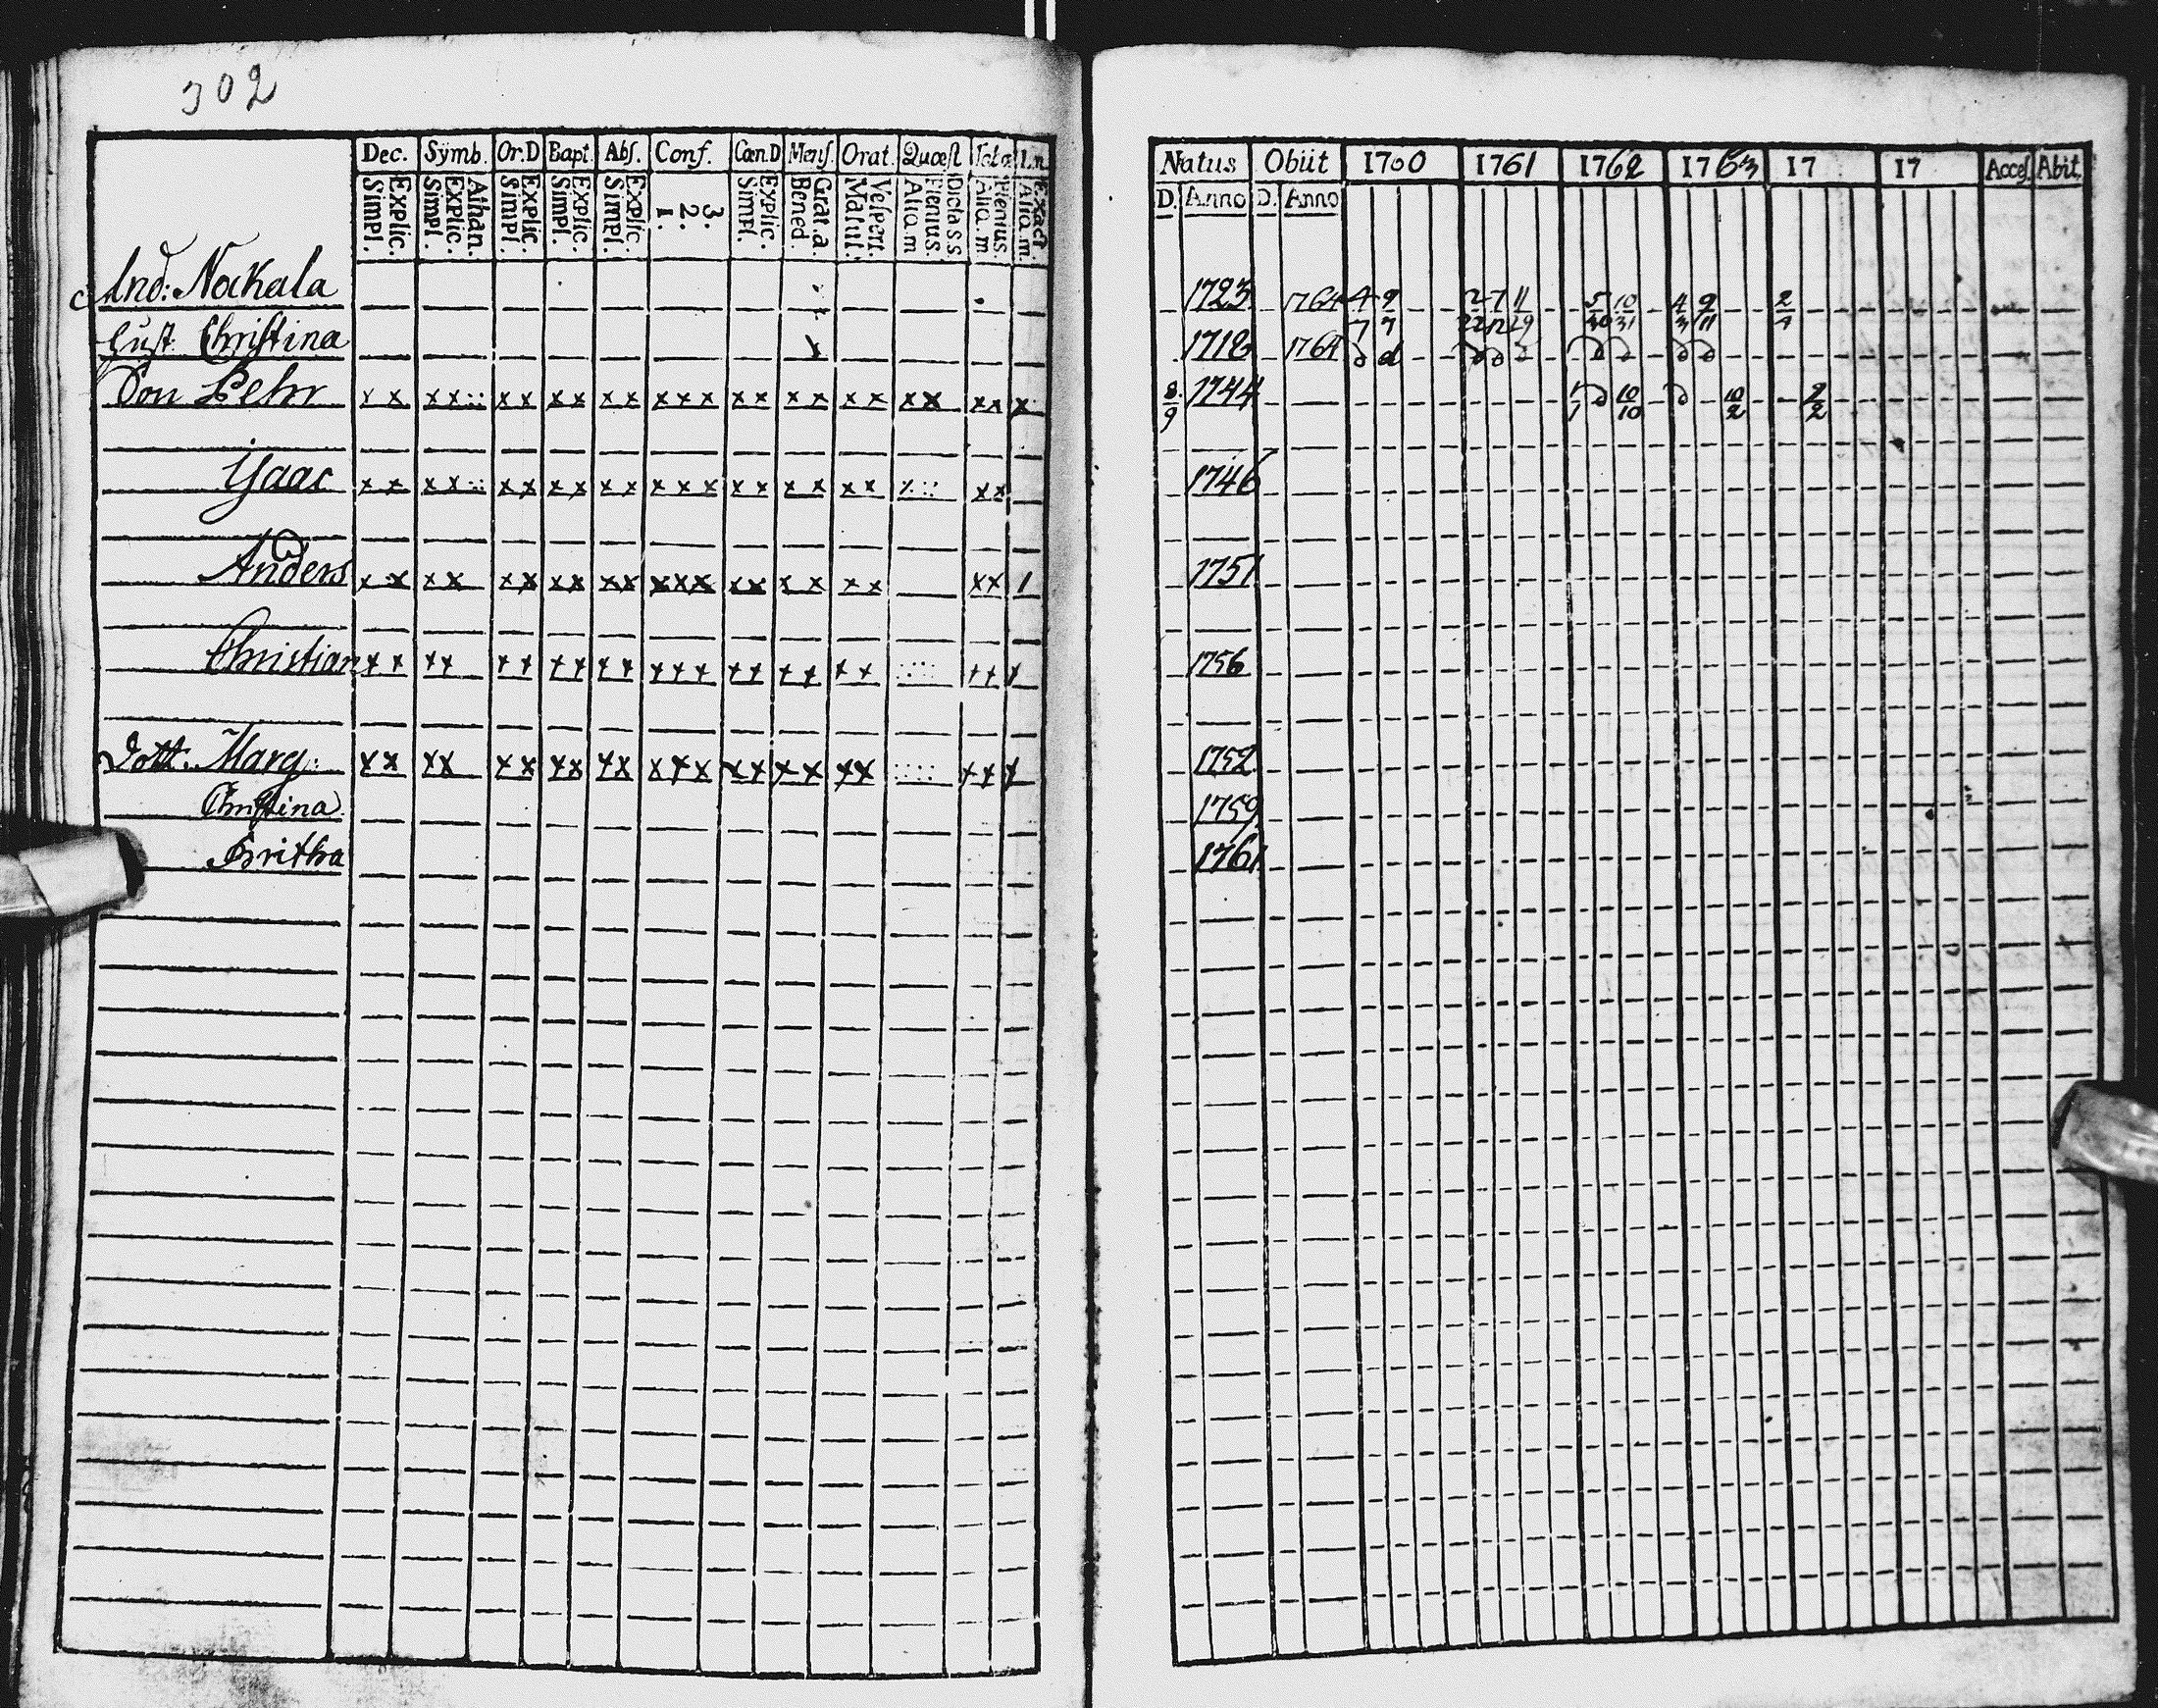 302
Dec. Sÿmb. Or.D Bapt. Abs. Conf. Cœn.D Mens. Orat. Quæst
Simpl. Explic. Simpl. Explic. Athan. Simpl. Explic. Simpl. Explic. Simpl. Explic. 1. 2. 3. Simpl. Explic. Bened. Grat.a Matut. Vespert. Aliam Plenius. Dicta s.s. Alia.m Plenius. Alia.m Exact.
And: Nokala
Hust: Christina x
Son Pehr x x x x :: x x x x x x x x x x x x x x x x x x x x
Isaac x x x x :: x x x x x x x x x x x x x x x x :: x x
Anders x x x x x x x x x x x x x x x x x x x x x 1
Christian x x x x x x x x x x x x x x x x x x x :::: x x x
Dott: Marg: x x x x x x x x x x x x x x x x x x x :::: x x x
Christina
Britha
Natus Obiit 1760 1761 1762 1763 17 17 Acces. Abit.
D. Anno D. Anno
1723 1764 4/7 9/7 2/22 7/12 11/29 5/30 10/31 4/3 9/11 2/4
1718 1764 d d d d d d d d d
8/9 1744 1/1 d 10/10 d 10/2 2/2
1746
1751
1756
1752
1759
1761